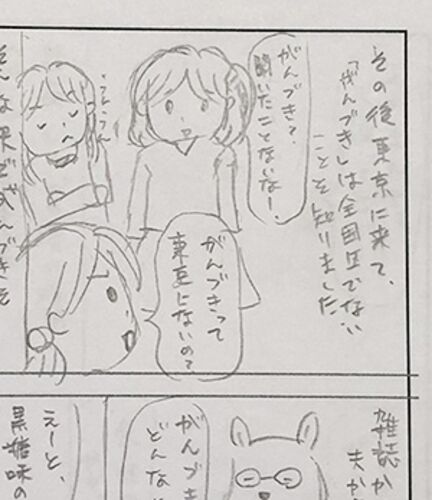 その後東京に来て、
「がんづき」は全国区でない
ことを知りました
がんづき?
聞いたことないなー。
うんうん
がんづきって
東京にないの?
そんな果で
がんづきを
雑誌か
夫か
がんづき
どんな
えーと、
黒糖味の